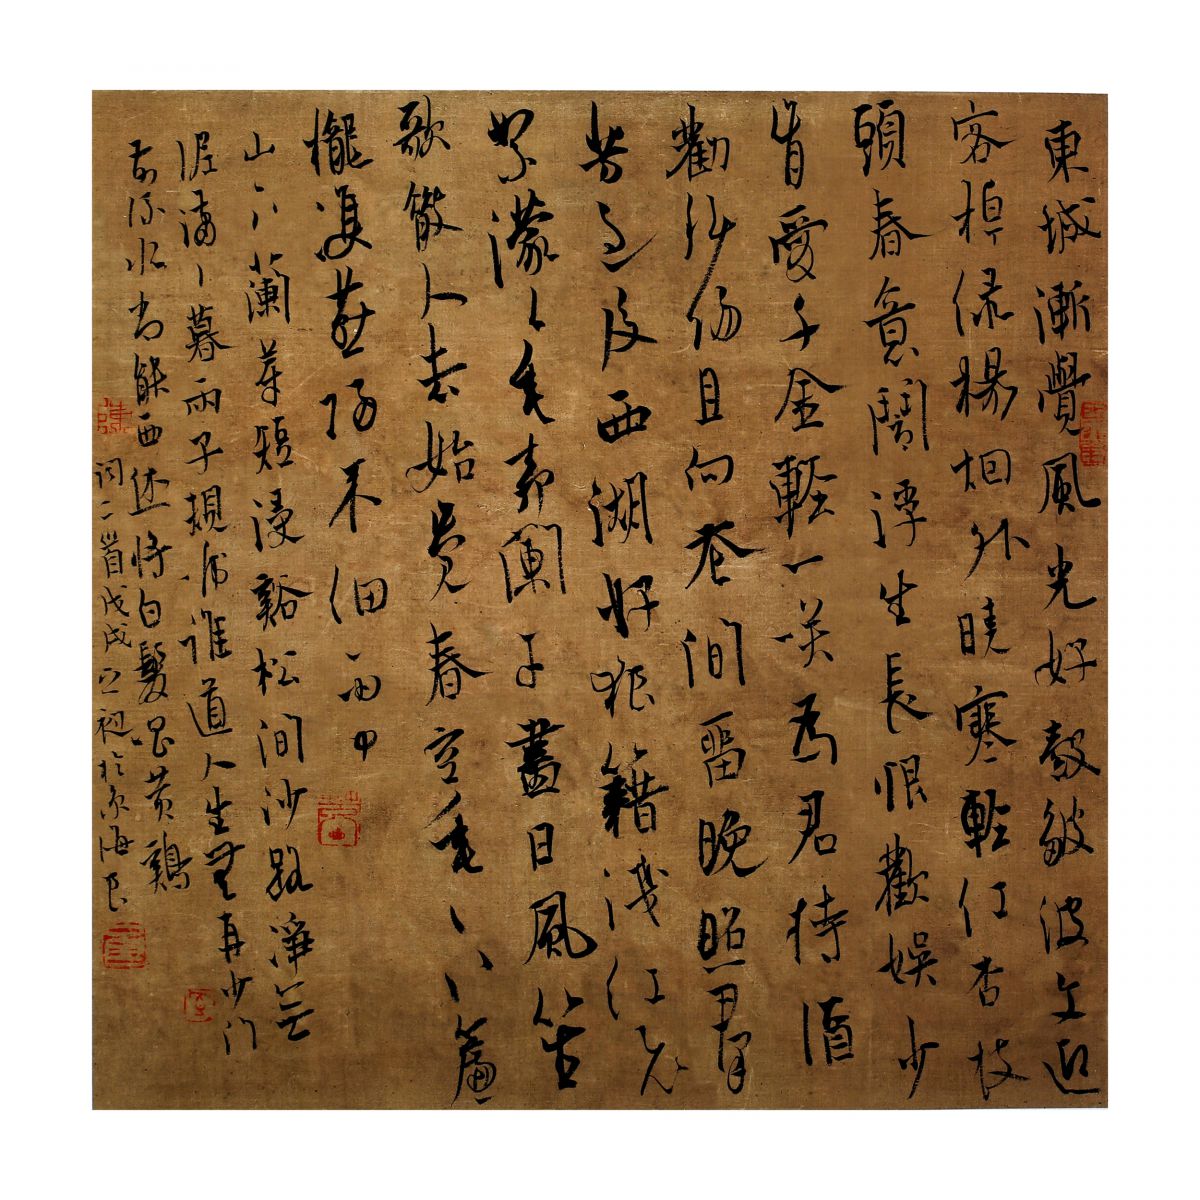 東城漸覺風光好縠皺波文迎
客棹緑楊烟外曉寒輕红杏枝
頭春意鬧浮生長恨歡娛少
肯愛千金輕一笑為君持酒
勸斜陽且向花間留晚照群
芳過後西湖好狼籍殘红飛
絮濛々垂柳闌干盡日風笙
歌散人去始覺春空垂々下簾
櫳雙燕歸來細雨中
山下蘭芽短浸谿松間沙路淨無
泥瀟々暮雨子規啼誰道人生無再少门
前流水尚能西休將白髮唱黄鷄
詞首戊戌之初於京海